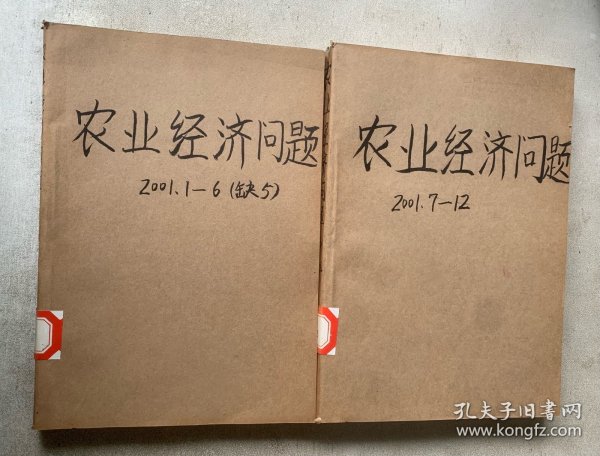 农业经济问题
2001.1-6(缺5)
农业经济问题
2001.7-12
孔夫子旧书网
www.kongfz.com